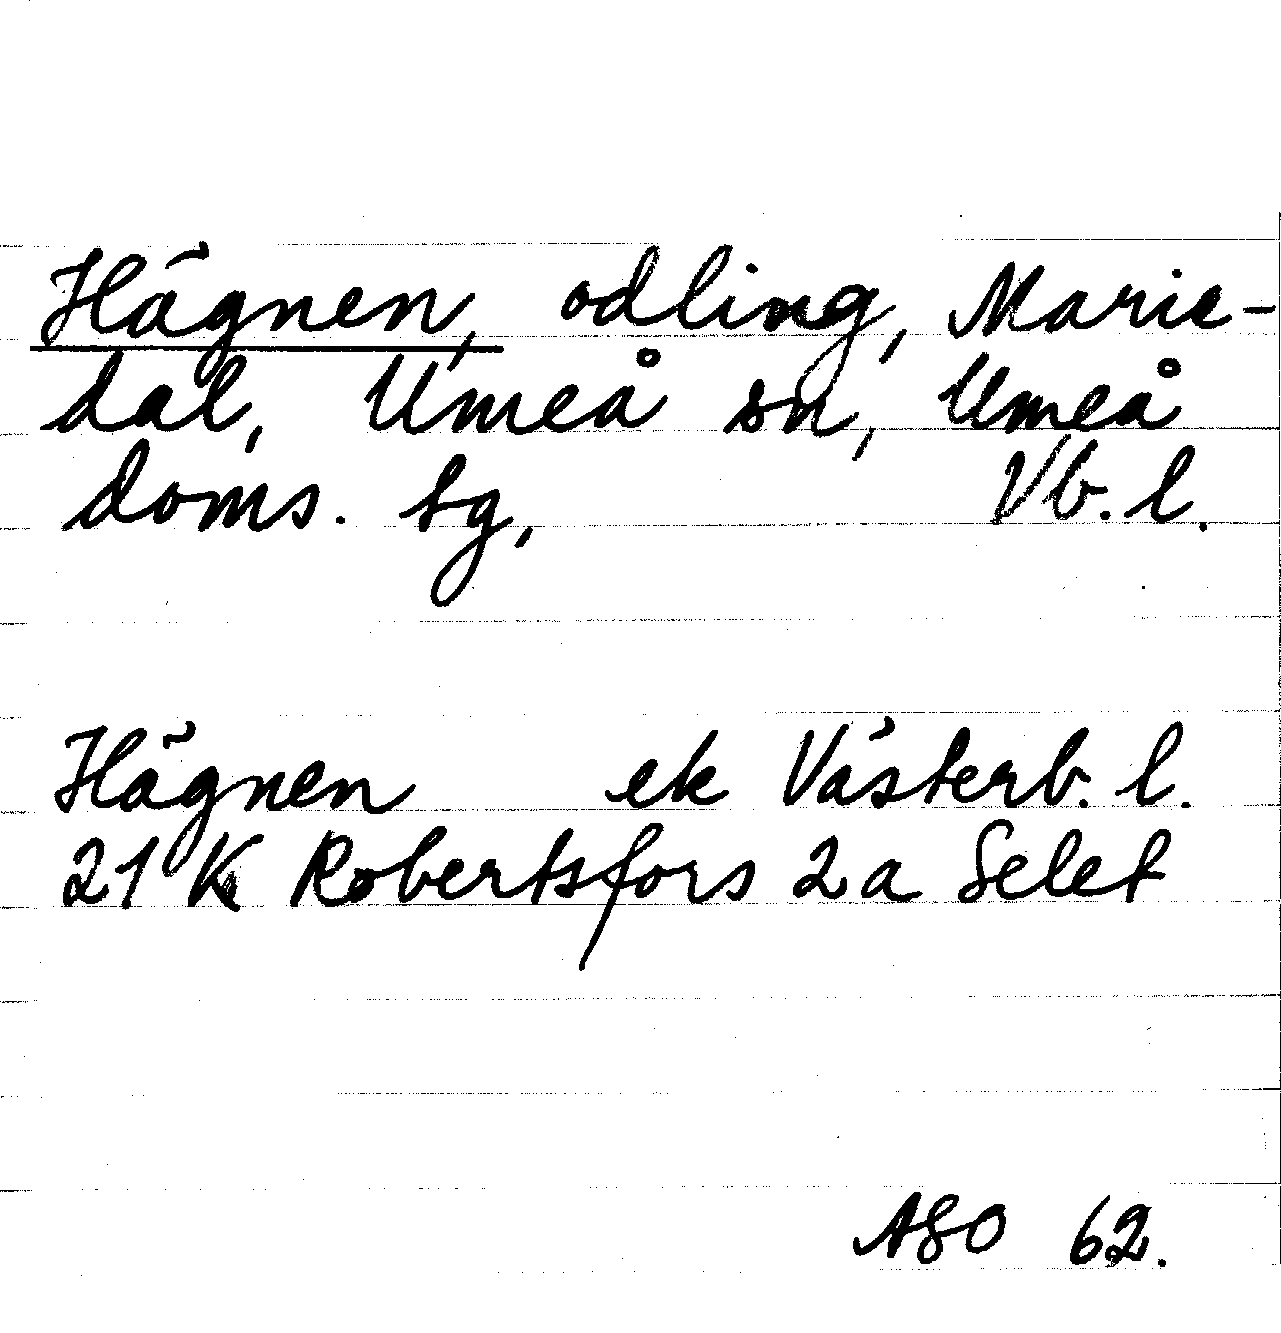 Hägnen, odling, Marie-
dal, Umeå sn, Umeå
doms. sg, Vb. l.
Hägnen ek Västerb. l.
21 K Robertsfors 2 a Selet
ASO 62.